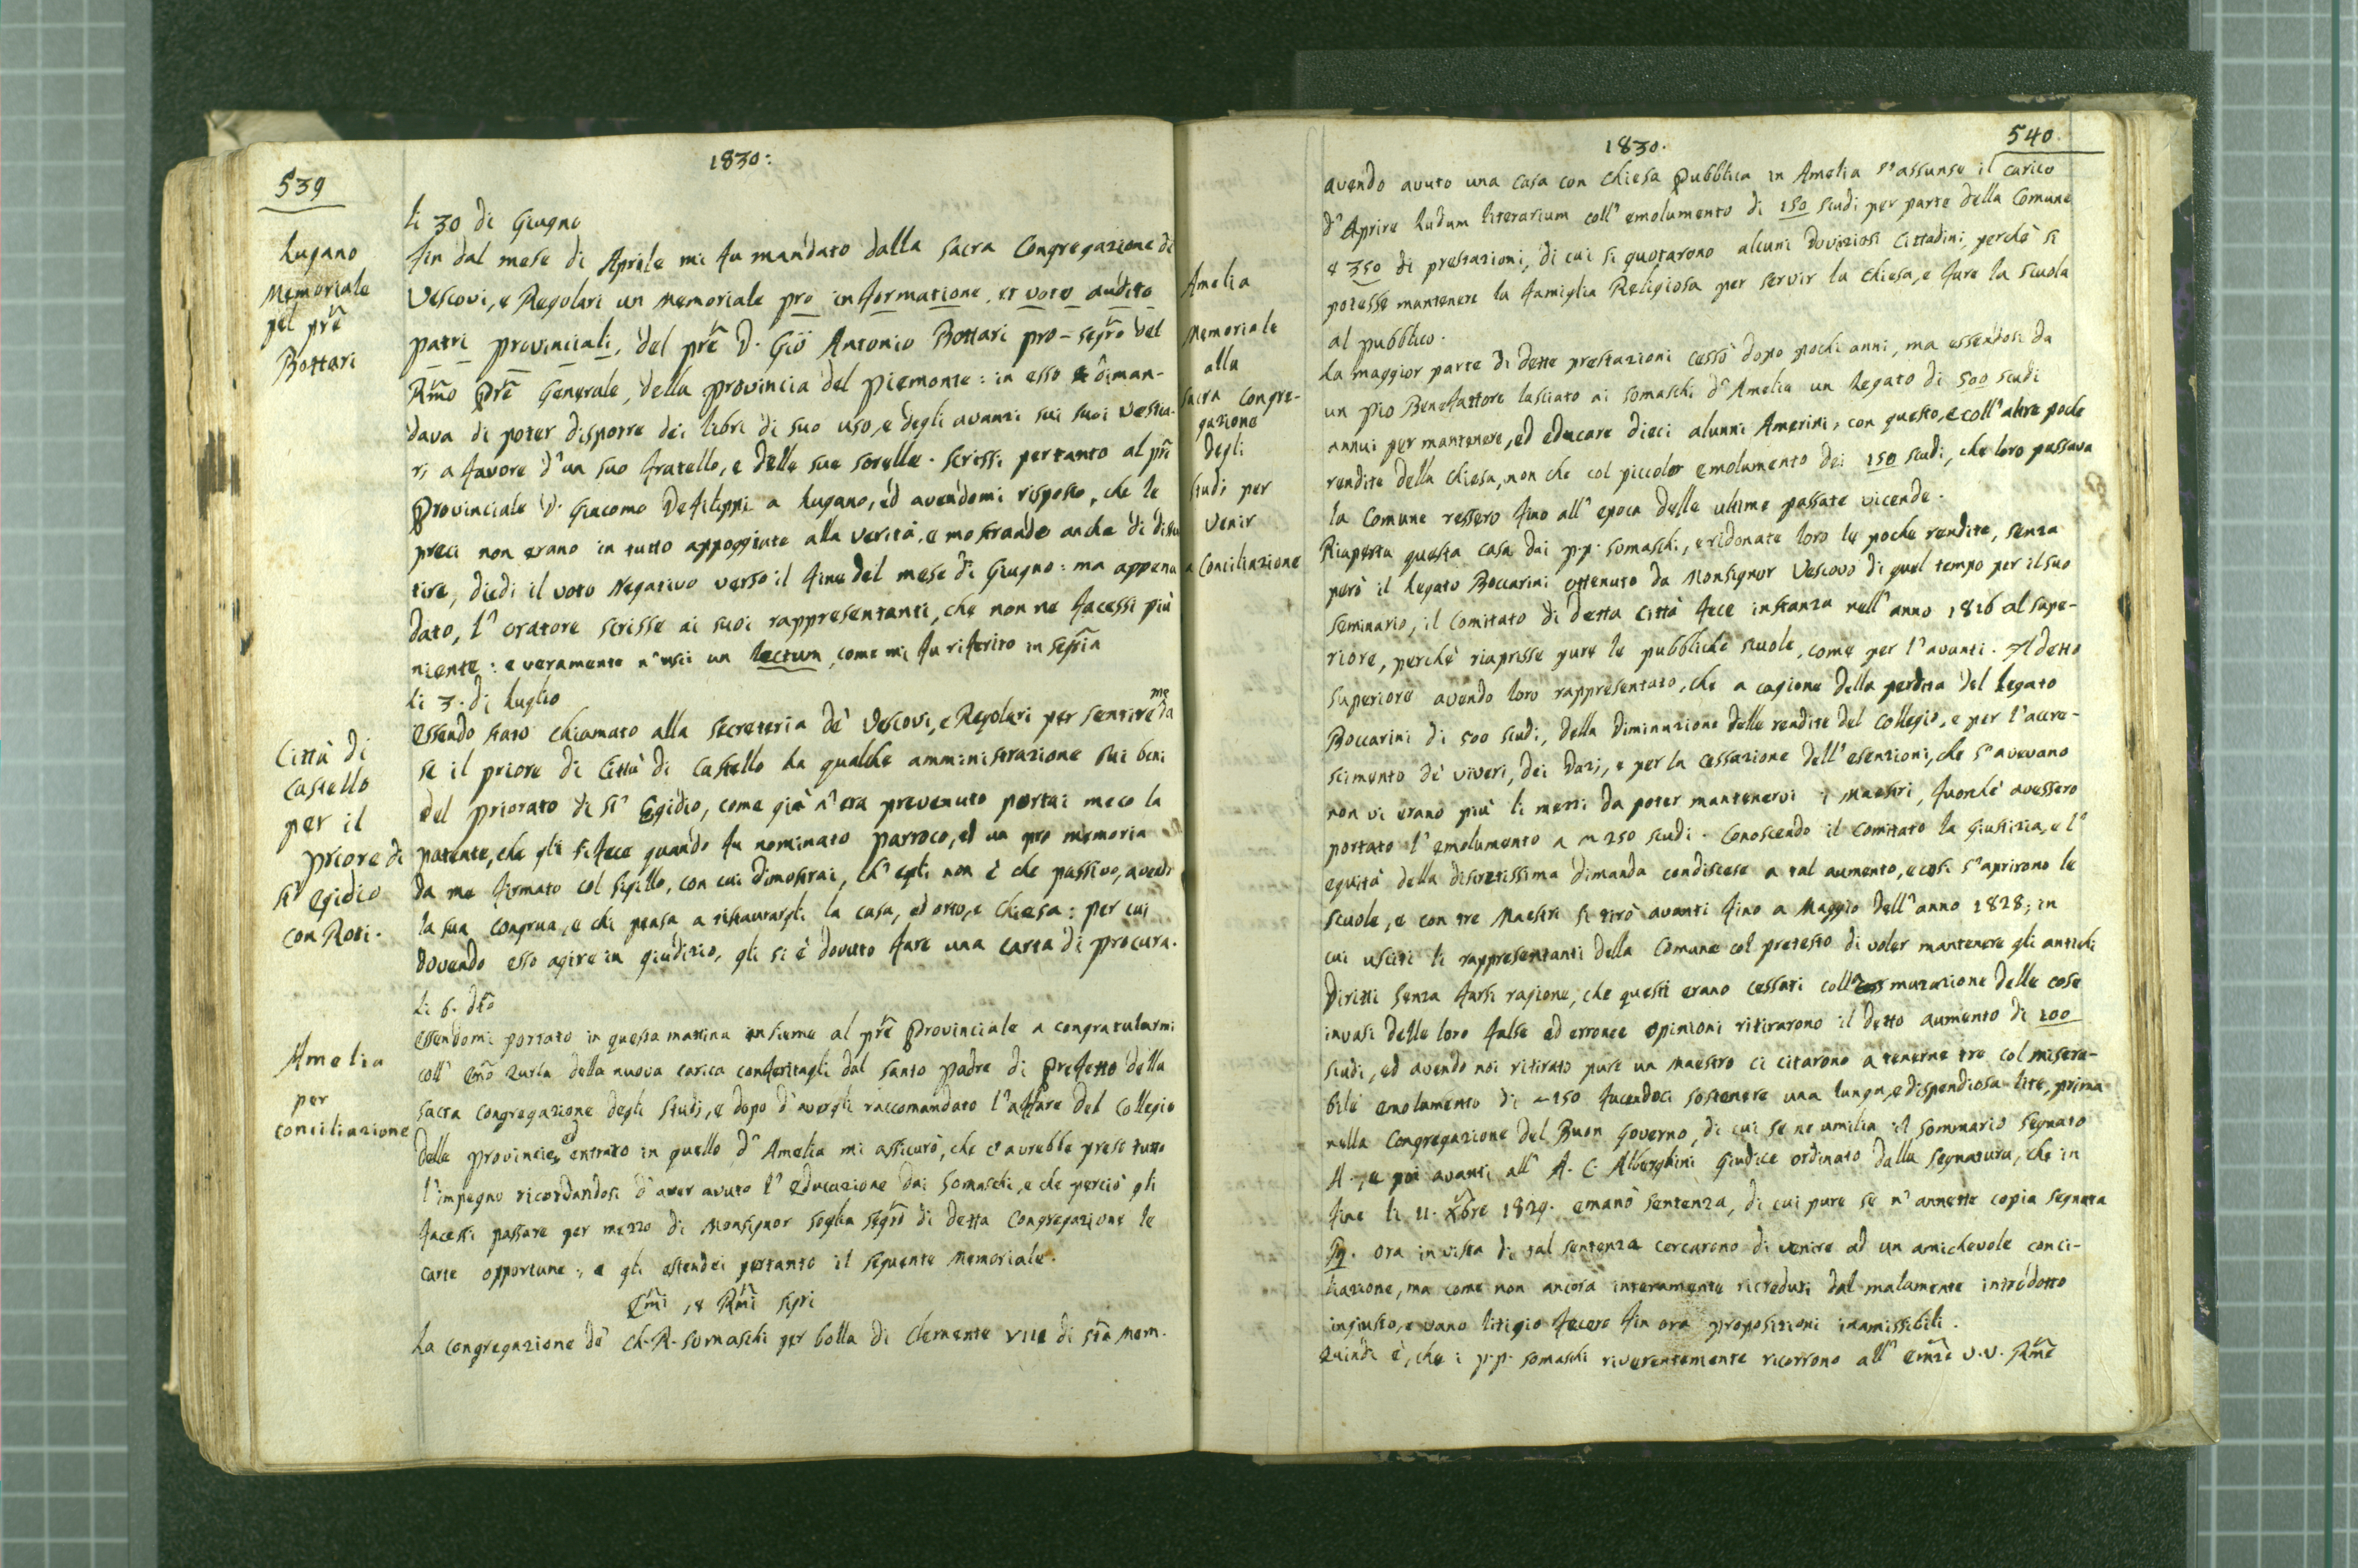 539
1830:
Lugano
Memoriale
pel pre
Bottari
li 30 di Giugno
Fin dal mese di Aprile mi fu mandato dalla Sacra Congregazione di
Vescovi, e Regolari un Memoriale pro informatione, et voto audito
patri provinciali, del pre D. Gio Antonio Bottari pro-segrō del
Rmō Pre Generale, della provincia del Piemonte: in esso diman-
dava di poter disporre dei libri di suo uso, e degli avanzi sui suoi vestia-
ri a favore d'un suo fratello, e delle sue sorelle. Scrissi pertanto al pre
Provinciale D. Giacomo Defilippi a Lugano, ed avendomi risposto, che le
preci non erano in tutto appoggiate alla verità, e mostrando anche di
tire, diedi il voto Negativo verso il fine del mese di Giugno: ma appena
dato, l'oratore scrisse ai suoi rappresentanti, che non ne facessi più
niente: e veramente n'uscì un lectum, come mi fu riferito in segria
Città di
Castello
per il
priore di
St Egidio
con Roti.
li 3. di Luglio
Essendo stato chiamato alla Secreteria de' Vescovi, e Regolari per sentire da me
se il priore di Città di Castello ha qualche amministrazione sui beni
del priorato di St Egidio, come già n'era prevenuto portai meco la
patente, che gli si fece quando fu nominato parroco, ed un pro memoria
da me firmato col sigillo, con cui dimostrai, ch'egli non è che passivo, avendo
la sua congrua, e chi pensa a ristaurargli la casa, ed orto, e chiesa: per cui
dovendo esso agire in giudizio, gli si è dovuto fare una carta di procura.
Amelia
per
conciliazione
li 6. dtō
Essendomi portato in questa mattina insieme al pre Provinciale a congratularmi
coll' Emō Zurla della nuova carica conferitagli dal Santo Padre di Prefetto della
Sacra Congregazione degli Studj, e dopo d'avergli raccomandato l'affare del Collegio
delle provincie, ed entrato in quello d'Amelia mi assicurò, che ci avrebbe preso tutto
l'impegno ricordandosi d'aver avuto l'educazione dai Somaschi, e che perciò gli
facessi passare per mezzo di Monsignor Soglia Segrō di detta Congregazione le
carte opportune: e gli estendei pertanto il seguente Memoriale.
Emī, e Rmī Sigri
La Congregazione de' Ch. R. Somaschi per bolla di Clemente VIII di sta mem.
1830.
540
Amelia
Memoriale
alla
Sacra Congre-
gazione
degli
Studj per
venir
a Conciliazione
avendo avuto una casa con Chiesa Pubblica in Amelia s'assunse il carico
d'Aprire Ludum literarium coll'emolumento di 150 scudi per parte della Comune
e 350 di prestazioni, di cui si quotarono alcuni doviziosi Cittadini, perchè si
potesse mantenere la famiglia Religiosa per servir la Chiesa, e fare la scuola
al pubblico.
La maggior parte di dette prestazioni cessò dopo pochi anni, ma essendosi da
un pio Benefattore lasciato ai Somaschi d'Amelia un Legato di 500 scudi
annui per mantenere, ed educare dieci alunni Amerini, con questo, e coll'altre poche
rendite della Chiesa, non che col piccolo emolumento dei 150 scudi, che loro passava
la Comune ressero fino all'epoca delle ultime passate vicende.
Riaperta questa casa dai p.p. Somaschi, e ridonate loro le poche rendite, senza
però il Legato Boccarini ottenuto da Monsignor Vescovo di quel tempo per il suo
Seminario, il Comitato di detta Città fece instanza nell'anno 1816 al Supe-
riore, perchè riaprisse pure le pubbliche scuole, come per l'avanti. Il detto
Superiore avendo loro rappresentato, che a cagione della perdita del Legato
Boccarini di 500 scudi, della diminuzione delle rendite del Collegio, e per l'accre-
scimento de' viveri, dei Dazj, e per la cessazione dell'esenzioni, che s'avevano
non vi erano più li mezzi da poter mantenervi i Maestri, fuorchè avessero
portato l'emolumento a 250 scudi. Conoscendo il Comitato la Giustizia, e l'
equità della discretissima dimanda condiscese a tal aumento, e così s'aprirono le
scuole, e con tre Maestri si tirò avanti fino a Maggio dell'anno 1828; in
cui usciti li rappresentanti della Comune col pretesto di voler mantenere gli antichi
Diritti senza farsi ragione, che questi erano cessati colla mutazione delle cose
invasi delle loro false ed erronee opinioni ritirarono il detto aumento di 100
scudi, ed avendo noi ritirato pure un Maestro ci citarono a tenerne tre col misera-
bile emolumento di 150 facendoci sostenere una lunga, e dispendiosa lite, prima
nella Congregazione del Buon Governo, di cui se ne umilia il Sommario Segnato
A, e poi avanti all' A. C. Alberghini Giudice ordinato dalla Segnatura, che in
fine li 11. Xbre 1829. emanò sentenza, di cui pure se n'annette copia segnata
B. Ora in vista di tal sentenza cercarono di venire ad un amichevole conci-
liazione, ma come non ancora interamente ricreduti dal malamente introdotto
ingiusto, e vano litigio fecero fin ora proposizioni inamissibili.
Quindi è, che i p.p. Somaschi riverentemente ricorrono all' Emze V.V. Rme